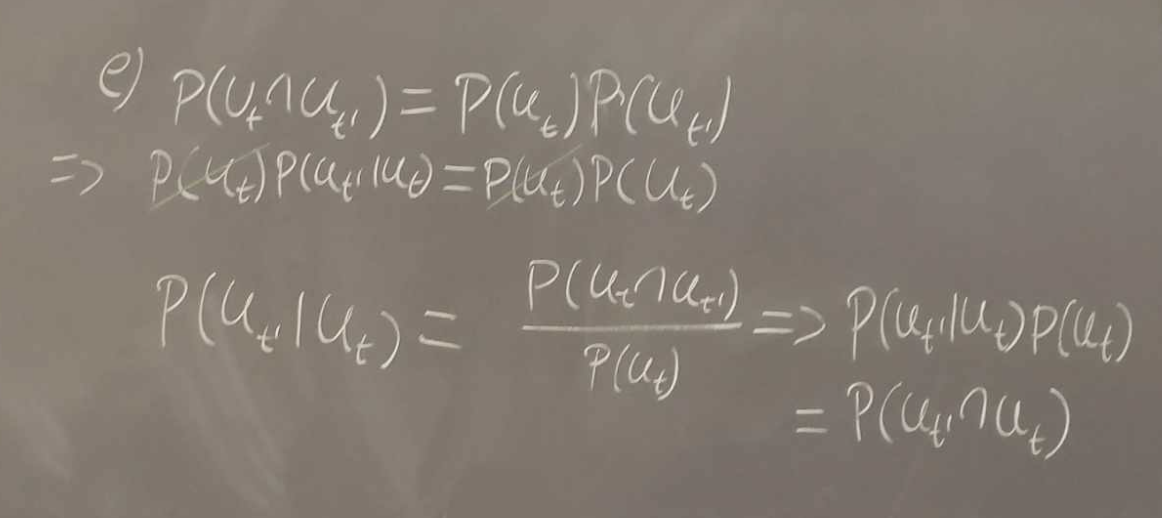 e) P(U_t ∩ U_t') = P(U_t)P(U_t')
=> P(U_t)P(U_t'|U_t) = P(U_t)P(U_t)
P(U_t'|U_t) = P(U_t ∩ U_t') / P(U_t) => P(U_t'|U_t)P(U_t)
= P(U_t' ∩ U_t)